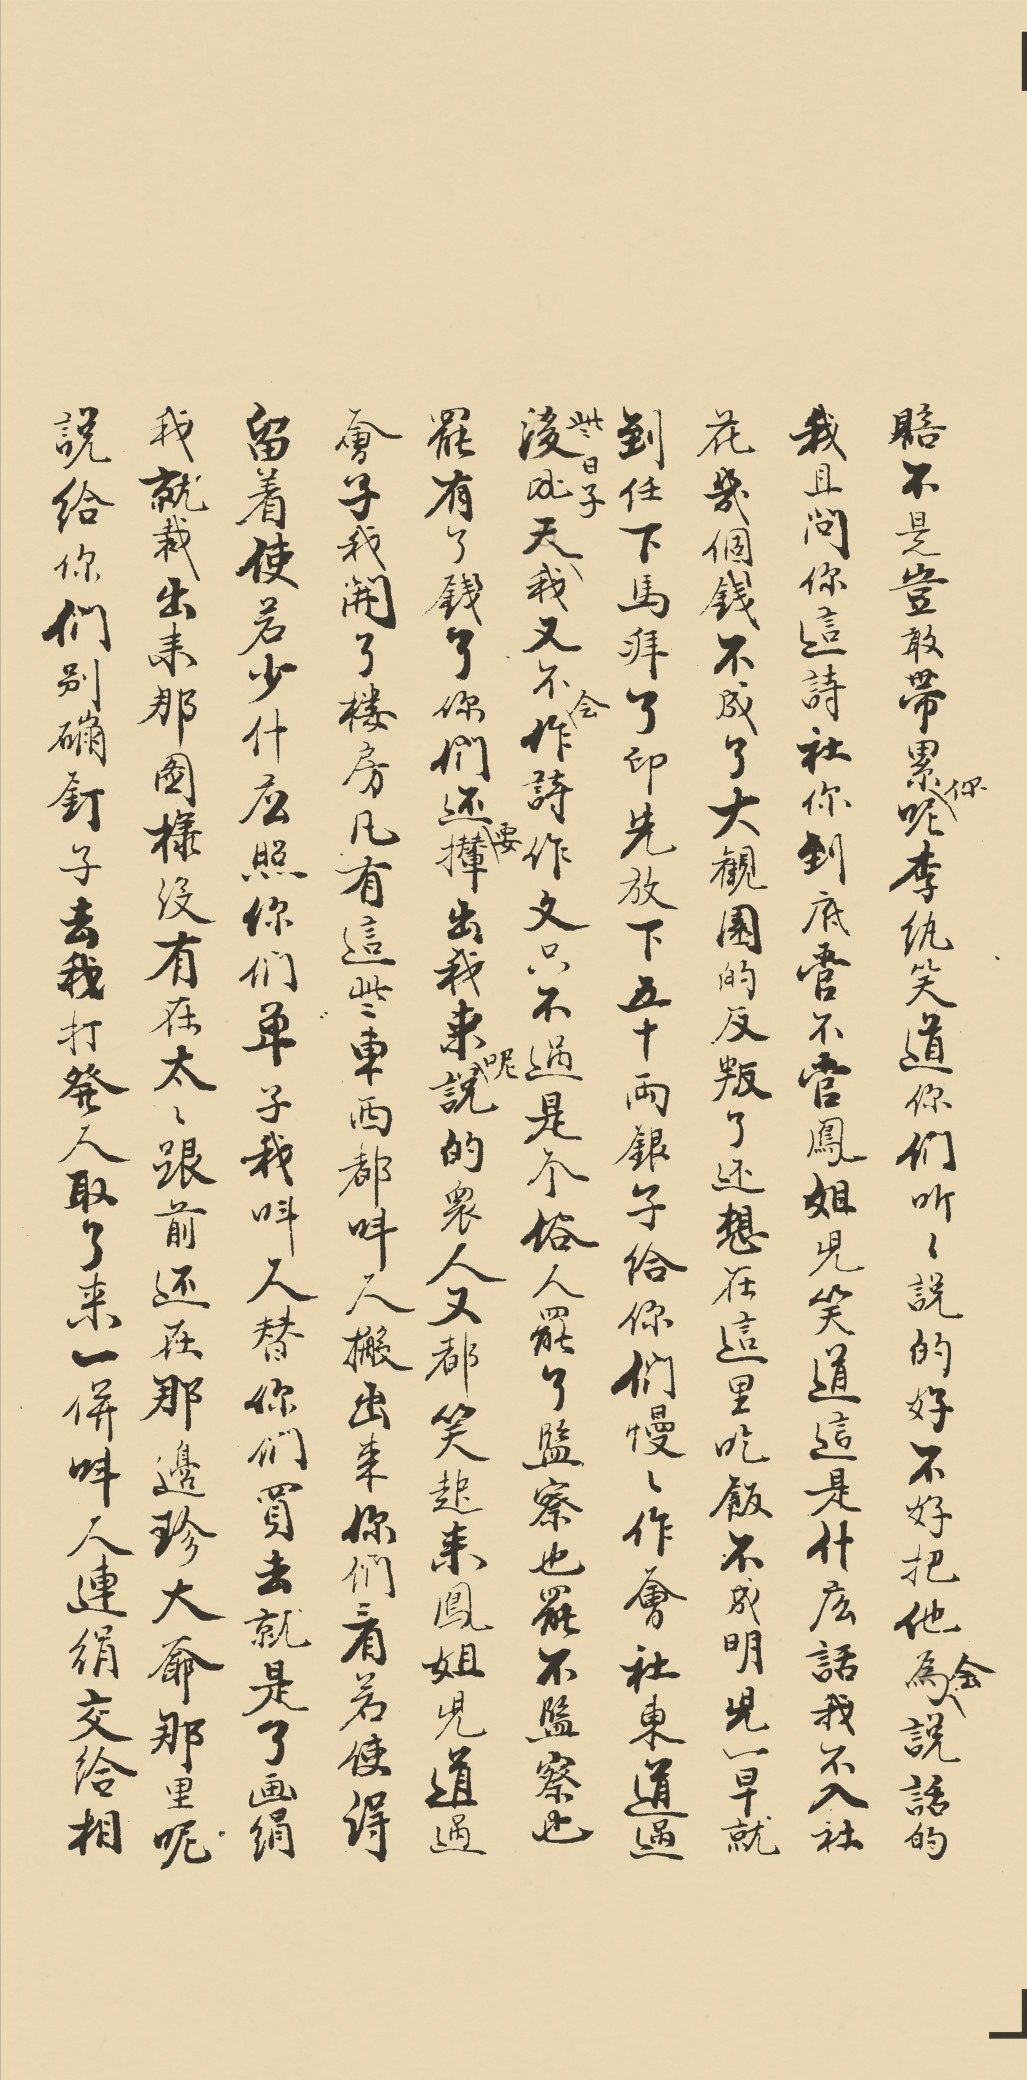 賠不是豈敢帶累你呢李紈笑道你們听〻説的好不好把他㑹為説話的
我且問你這詩社你到底管不管鳳姐児笑道這是什庅話我不入社
花幾個錢不成了大觀園的反叛了还想在這里吃飯不成明児一早就
到任下馬拜了印先放下五十両銀子給你們慢〻作會社東道過
後此天些日子我又不会作詩作文只不過是个俗人罷了監察也罷不監察也
罷有了錢了你們还要攆出我来呢説的衆人又都笑起来鳳姐児道過
會子我開了楼房凡有這些東西都呌人搬出来你們看若使得
留着使若少什庅照你們单子我呌人替你們買去就是了画絹
我就裁出来那圖樣没有在太〻跟前还在那邊珍大爺那里呢
説給你們别碰釘子去我打發人取了来一併呌人連絹交給相